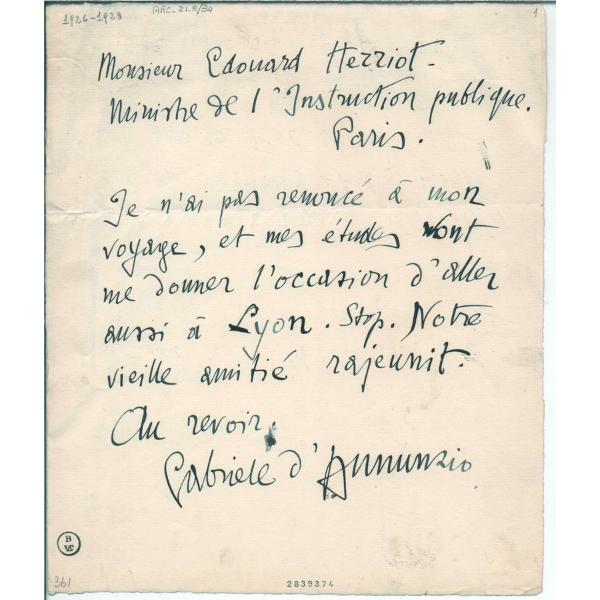 1926-1928
ARC. 21.8/34
1
Monsieur Edouard Herriot-
Ministre de l'Instruction publique.
Paris.
Je n'ai pas renoncé à mon
voyage, et mes études vont
me donner l'occasion d'aller
aussi à Lyon. Stop. Notre
vieille amitié rajeunit.
Au revoir.
Gabriele d'Annunzio
361
2839374